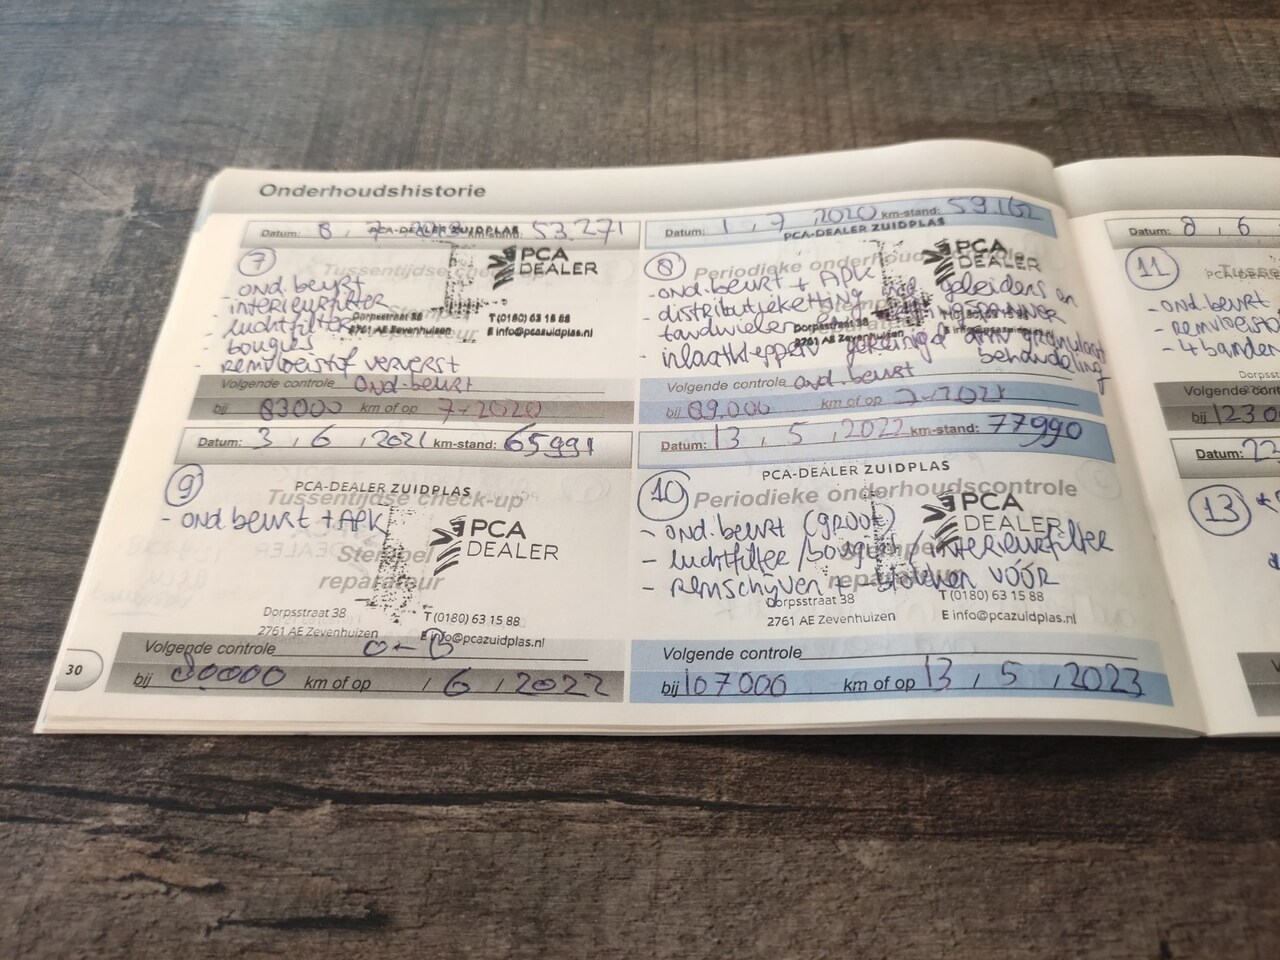 Onderhoudshistorie
Datum: 8, 7 km-stand: 53.271
PCA-DEALER ZUIDPLAS
7
PCA
DEALER
Tussentijdse check-up
- ond.beurt
- interieurfilter
- luchtfilter
- bougies
- remvloeistof ververst
Stempel
reparateur
Dorpsstraat 38
2761 AE Zevenhuizen
T (0180) 63 15 88
E info@pcazuidplas.nl
Volgende controle ond.beurt
bij 83000 km of op 7-2020
Datum: 1, 7 2020 km-stand: 59.162
PCA-DEALER ZUIDPLAS
8
PCA
DEALER
Periodieke onderhoudscontrole
- ond.beurt + APK
- distributieketting incl. geleiders en
tandwielen spanner
- inlaatkleppen gereinigd dmv granulaat
behandeling
Dorpsstraat 38
2761 AE Zevenhuizen
Volgende controle ond.beurt
bij 89.000 km of op 7-2021
Datum: 3, 6, 2021 km-stand: 65991
PCA-DEALER ZUIDPLAS
9
Tussentijdse check-up
- ond.beurt + APK
PCA
DEALER
Stempel
reparateur
Dorpsstraat 38
2761 AE Zevenhuizen
T (0180) 63 15 88
E info@pcazuidplas.nl
Volgende controle O-B
bij 80000 km of op , 6, 2022
Datum: 13, 5, 2022 km-stand: 77990
PCA-DEALER ZUIDPLAS
10
Periodieke onderhoudscontrole
- ond.beurt (groot)
- luchtfilter/bougies/interieurfilter
- remschijven + blokken VÓÓR
PCA
DEALER
Stempel
reparateur
Dorpsstraat 38
2761 AE Zevenhuizen
T (0180) 63 15 88
E info@pcazuidplas.nl
Volgende controle
bij 107000 km of op 13, 5, 2023
30
Datum: 8, 6
11
- ond.beurt
- remvloeistof
- 4 banden
Volgende
bij 1230
Datum: 22
13